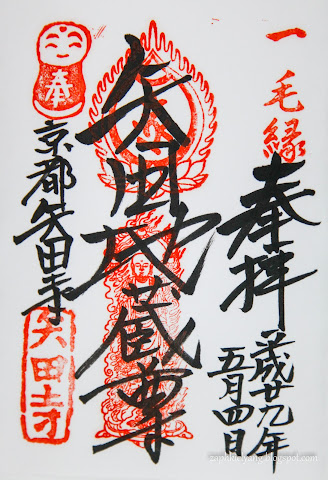 一毛縁
奉拝
平成廿九年
五月四日
矢田地蔵尊
奉
京都矢田寺
矢田寺
zaphkielyang.blogspot.com